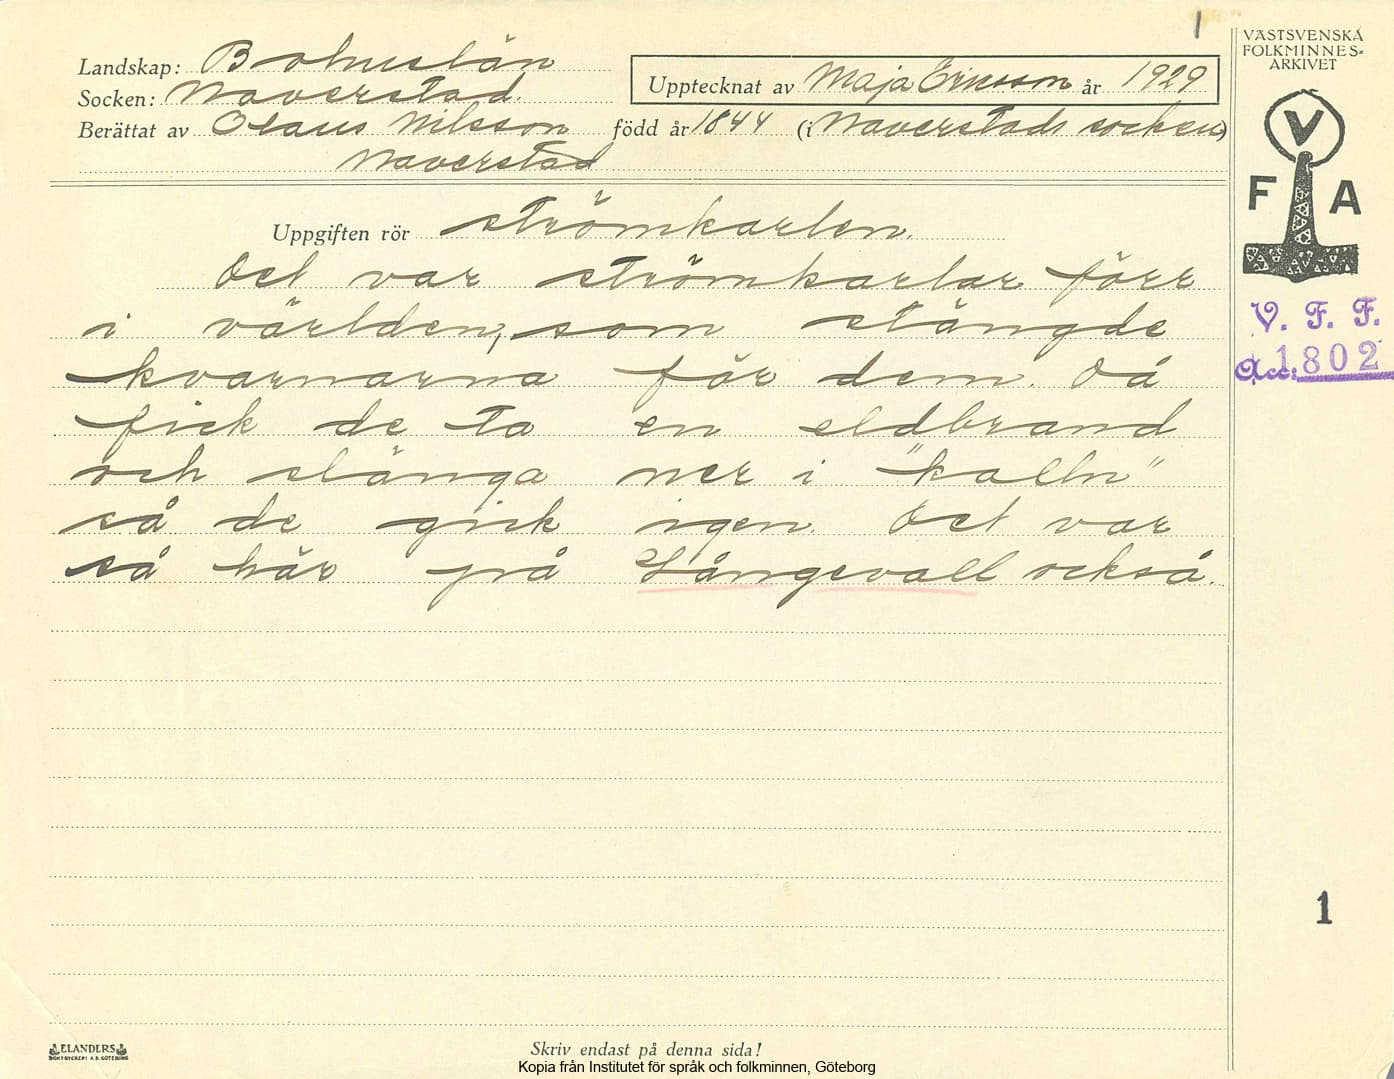 1
VÄSTSVENSKA
FOLKMINNES-
ARKIVET
Landskap: Bohuslän
Socken: Naverstad.
Upptecknat av Maja Ericsson år 1929
Berättat av Olaus Nilsson född år 1844 (i Naverstads socken)
Naverstad
V
F A
Uppgiften rör strömkarlen.
Det var strömkarlar förr
i världen, som stängde
kvarnarna för dem. Då
fick de ta en eldbrand
och slänga ner i "kalln"
så de gick igen. Det var
så här på Långevall också.
V. F. F.
Acc: 1802
1
ELANDERS
BOKTRYCKERI A.B. GÖTEBORG
Skriv endast på denna sida!
Kopia från Institutet för språk och folkminnen, Göteborg